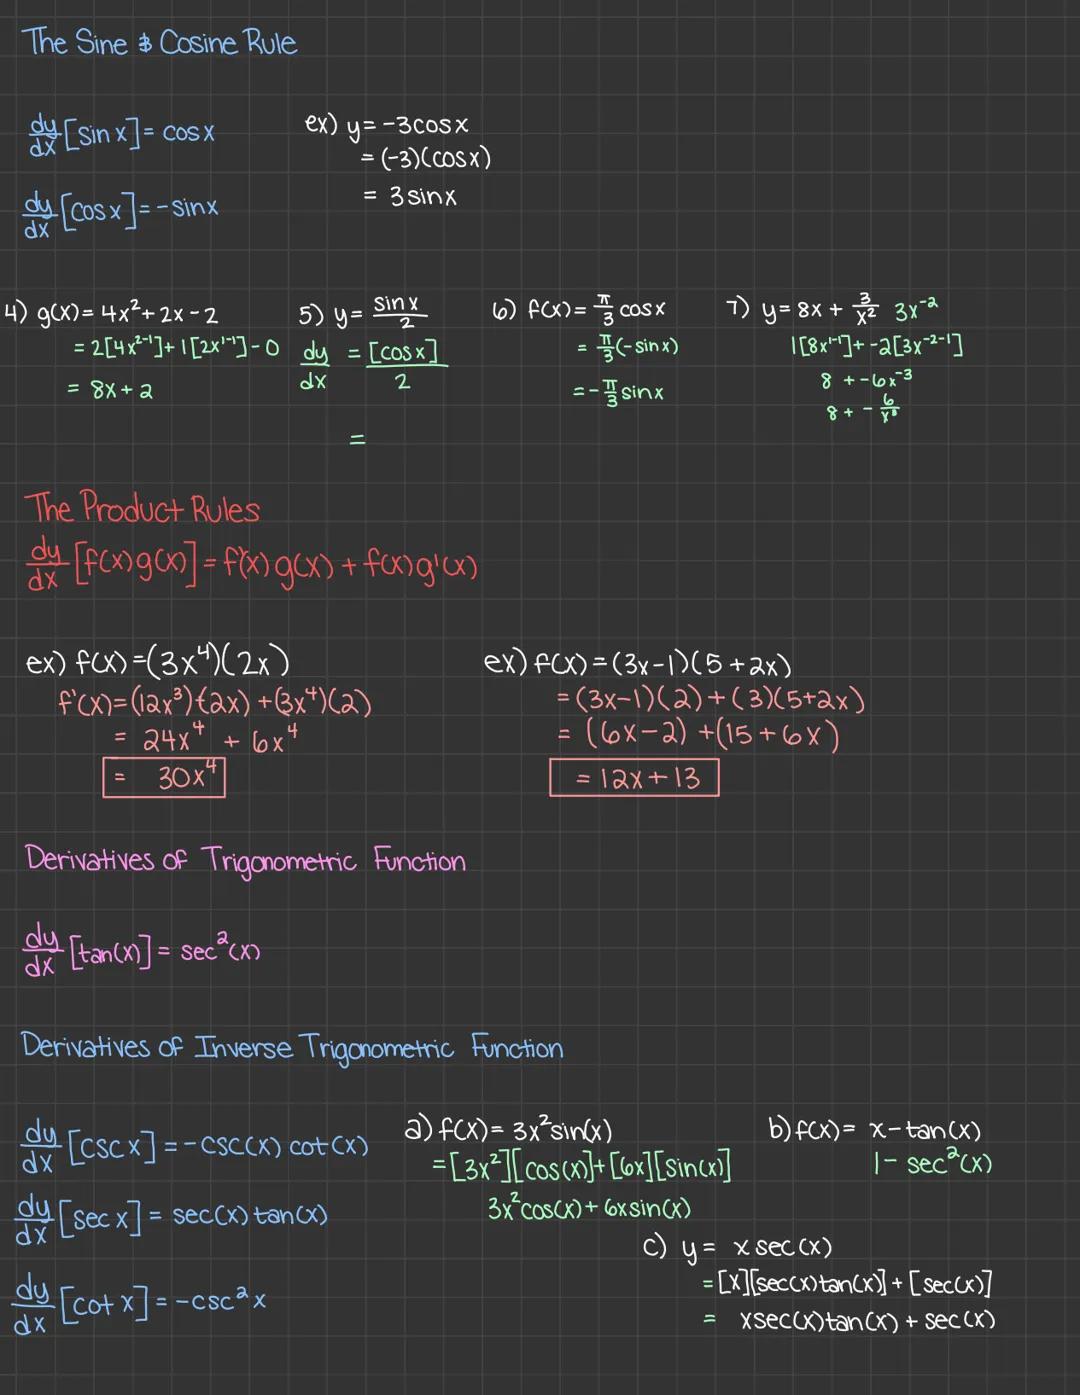 The Sine & Cosine Rule
dy/dx [sin x] = cos x
dy/dx [cos x] = -sin x
ex) y = -3cos x
= (-3)(cos x)
= 3 sin x
4) g(x) = 4x² + 2x - 2
= 2[4x²⁻¹] + 1[2x¹⁻¹] - 0
= 8x + 2
5) y = sin x / 2
dy/dx = [cos x] / 2
=
6) f(x) = π/3 cos x
= π/3 (-sin x)
= -π/3 sin x
7) y = 8x + 3/x² 3x⁻²
1[8x¹⁻¹] + -2[3x⁻²⁻¹]
8 + -6x⁻³
8 + - 6/x³
The Product Rules
dy/dx [f(x)g(x)] = f'(x)g(x) + f(x)g'(x)
ex) f(x) = (3x⁴)(2x)
f'(x) = (12x³)(2x) + (3x⁴)(2)
= 24x⁴ + 6x⁴
= 30x⁴
ex) f(x) = (3x-1)(5+2x)
= (3x-1)(2) + (3)(5+2x)
= (6x-2) + (15+6x)
= 12x + 13
Derivatives of Trigonometric Function
dy/dx [tan(x)] = sec²(x)
Derivatives of Inverse Trigonometric Function
dy/dx [csc x] = -csc(x) cot(x)
dy/dx [sec x] = sec(x) tan(x)
dy/dx [cot x] = -csc² x
a) f(x) = 3x² sin(x)
= [3x²][cos(x)] + [6x][sin(x)]
3x² cos(x) + 6x sin(x)
b) f(x) = x - tan(x)
1 - sec²(x)
c) y = x sec(x)
= [x][sec(x)tan(x)] + [sec(x)]
= xsec(x)tan(x) + sec(x)